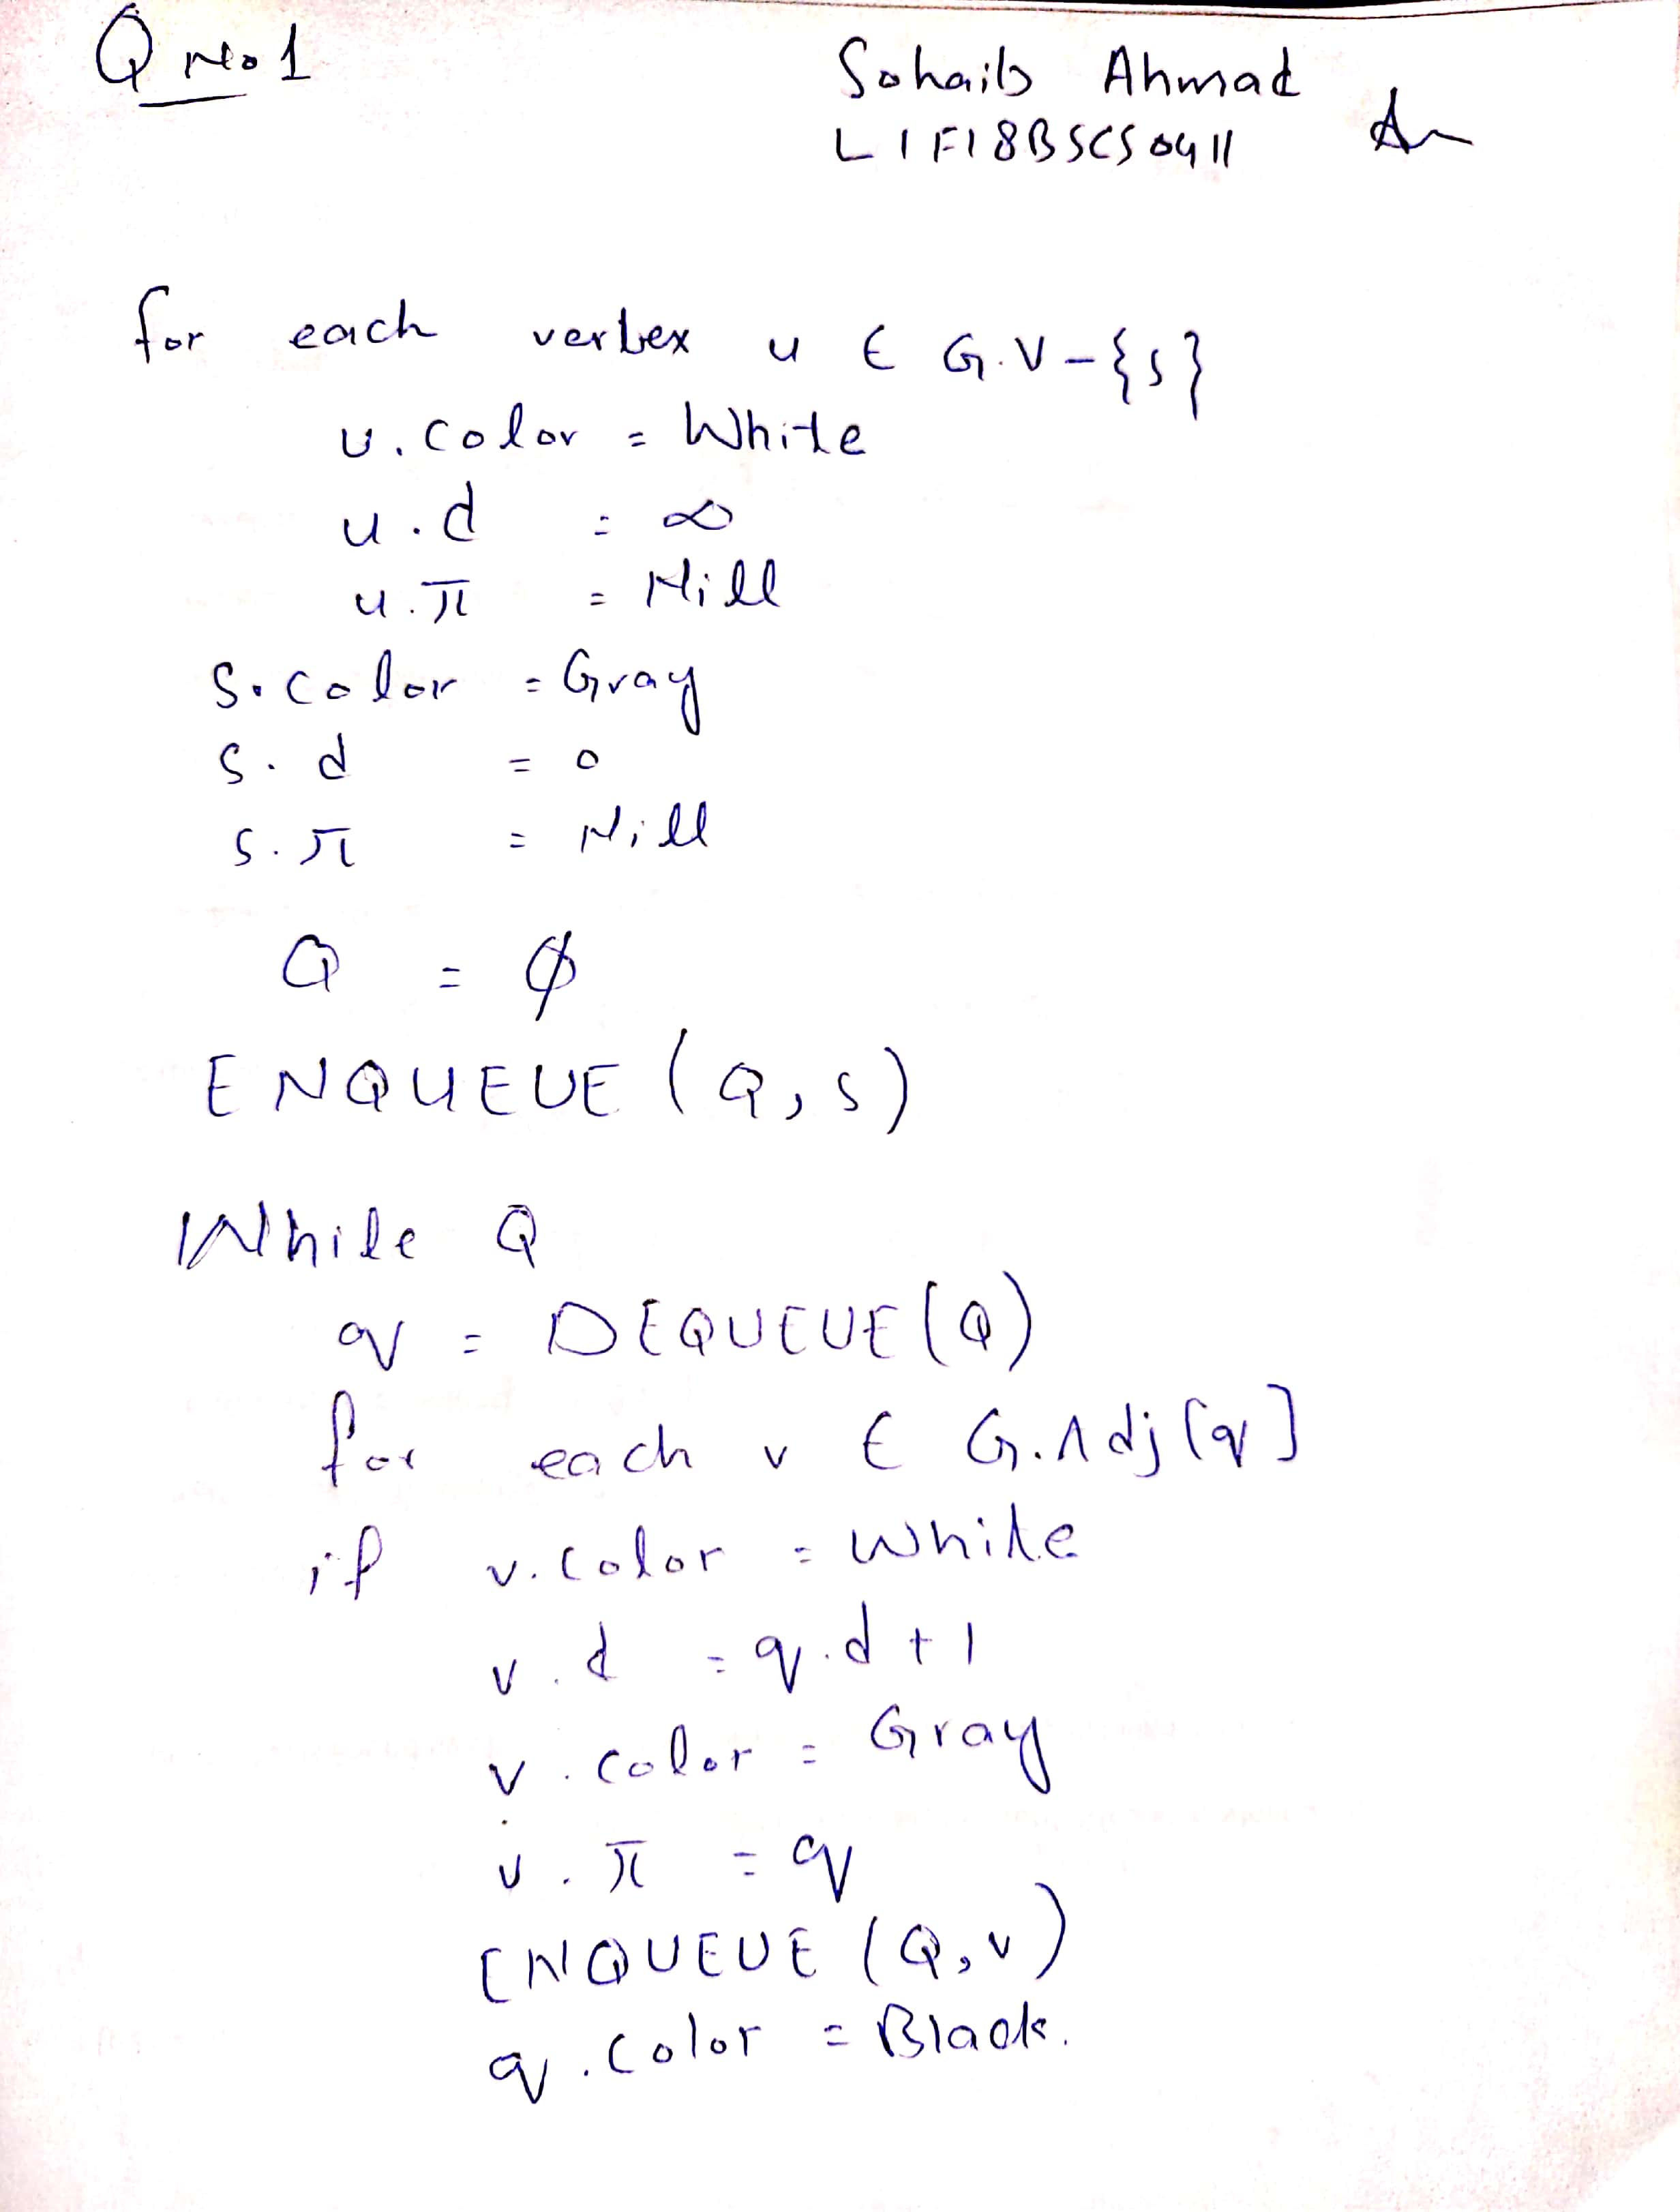 Q No 1
Sohaib Ahmad
L1F18BSCS0411
for each vertex u ∈ G.V-{s}
u.color = White
u.d = ∞
u.π = Nill
S.color = Gray
S.d = 0
S.π = Nill
Q = ϕ
ENQUEUE (Q,s)
While Q
q = DEQUEUE(Q)
for each v ∈ G.Adj[q]
if v.color = White
v.d = q.d+1
v.color = Gray
v.π = q
ENQUEUE (Q,v)
q.color = Black.